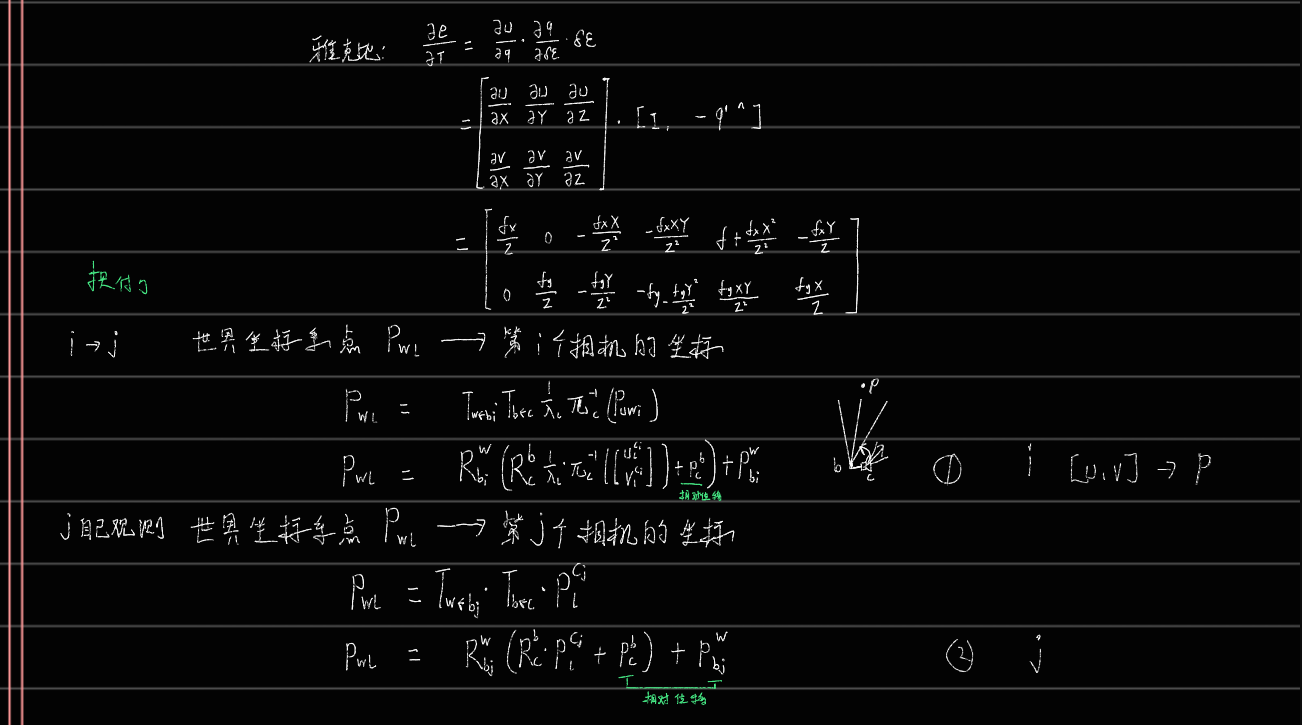 雅克比: ∂e/∂T = ∂u/∂q · ∂q/∂δε · δε
= [ ∂u/∂X ∂u/∂Y ∂u/∂Z ; ∂v/∂X ∂v/∂Y ∂v/∂Z ] · [I, -q'^]
= [ fx/Z 0 -fxX/Z² -fxXY/Z² f+fxX²/Z² -fxY/Z ; 0 fy/Z -fyY/Z² -fy-fyY²/Z² fyXY/Z² fyX/Z ]
i→j 世界坐标系点 P_wl → 第i个相机的坐标
P_wl = T_w←bi T_b←c 1/λc π_c^-1 (P_uvi)
·P
P_wl = R_bi^w (R_c^b 1/λi · π_c^-1 ([u_i^ci v_i^ci]) + p_c^b) + P_bi^w ① i [u,v] → P
b c
相对位移
j自己观测 世界坐标系点 P_wl → 第j个相机的坐标
P_wl = T_w←bj · T_b←c · P_l^cj
P_wl = R_bj^w (R_c^b · P_l^cj + p_c^b) + P_bj^w ② j
相对位移